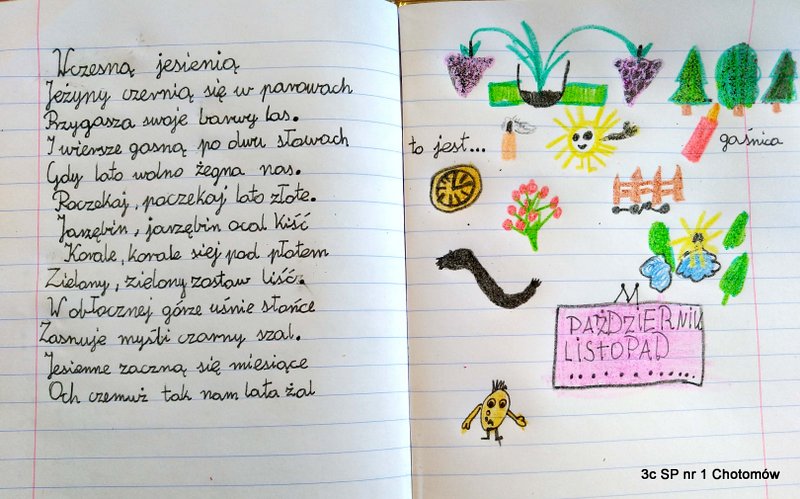 Wczesną jesienią
Jeżyny czernią się w parowach
Przygasza swoje barwy las.
I wiersze gasną po dwu słowach
Gdy lato wolno żegna nas.
Poczekaj, poczekaj lato złote.
Jarzębin, jarzębin ocal kiść
Korale, korale siej pod płotem
Zielony, zielony zostaw liść.
W obłocznej górze uśnie słońce
Zasnuje myśli czarny szal.
Jesienne zaczną się miesiące
Och czemuż tak nam lata żal
to jest...
gaśnica
PAŹDZIERNIK
LISTOPAD
3c SP nr 1 Chotomów